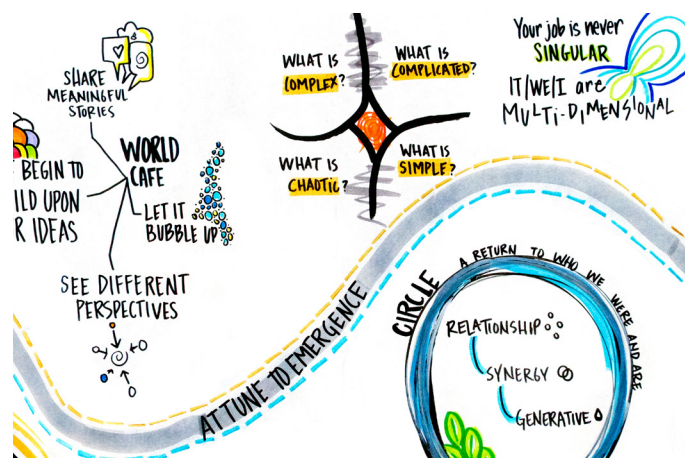 SHARE
MEANINGFUL
STORIES
WORLD
CAFE
BEGIN TO
ILD UPON
R IDEAS
LET IT
BUBBLE UP
SEE DIFFERENT
PERSPECTIVES
WHAT IS
COMPLEX?
WHAT IS
COMPLICATED?
WHAT IS
CHAOTIC?
WHAT IS
SIMPLE?
Your job is never
SINGULAR
IT/WE/I are
MULTi-DIMENSIONAL
ATTUNE TO EMERGENCE
CIRCLE
A RETURN TO WHO WE WERE AND ARE
RELATIONSHIP
SYNERGY
GENERATIVE